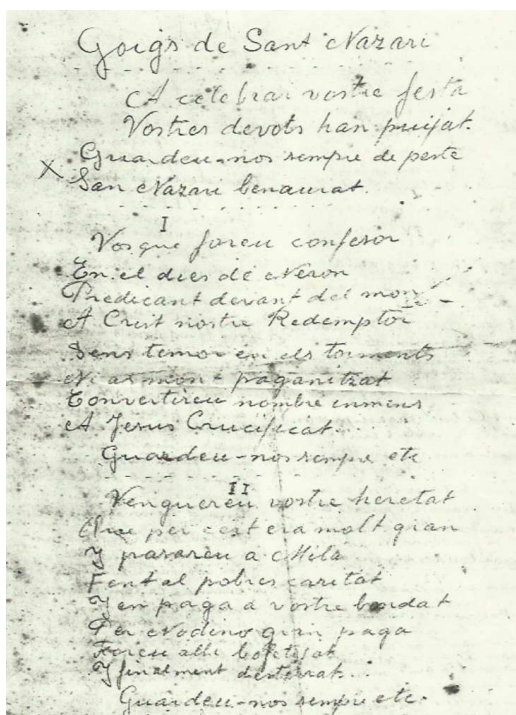 Goigs de Sant Nazari
A celebrar vostre festa
Vostres devots han puijat.
Guardeu-nos sempre de peste
X San Nazari benaurat.
I
Vos que foreu confesor
En el dies de Neron
Predicant devant del mon
A Crist nostre Redemptor
Sens temor en els torments
Ni al mon paganitzat
Convertireu nombre inmens
A Jesus Crucificat...
Guardeu-nos sempre etc
II
Venguereu vostre heretat
Que per cert era molt gran
Y parareu a Mila
Fent al pobres caritat
Y en paga a vostre bondat
Per gran paga
Foreu alli
Y finalment desterrat...
Guardeu-nos sempre etc.